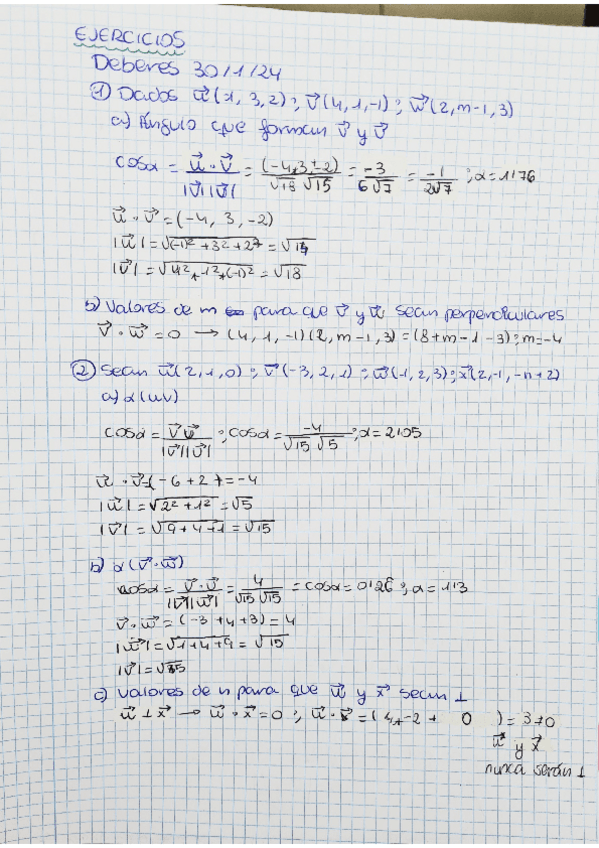 EJERCICIOS
Deberes 30/1/24
① Dados u⃗(1, 3, 2) ; v⃗(4, 1, -1) ; w⃗(2, m-1, 3)
a) Ángulo que forman v⃗ y v⃗
cosα = u⃗ · v⃗ / |v⃗||v⃗| = (-4+3+-2) / √18 √15 = -3 / 6√7 = -1 / 2√7 ; α = 1'76
u⃗ · v⃗ = (-4, 3, -2)
|u⃗| = √(-1)² + 3² + 2² = √14
|v⃗| = √4² + 1² + (-1)² = √18
b) Valores de m para que v⃗ y w⃗ sean perpendiculares
v⃗ · w⃗ = 0 → (4, 1, -1)(2, m-1, 3) = (8+m-1-3) ; m=-4
② Sean u⃗(2, 1, 0) ; v⃗(-3, 2, 1) ; w⃗(1, 2, 3) ; x⃗(2, -1, -n+2)
a) α(u,v)
cosα = v⃗ u⃗ / |v⃗||u⃗| ; cosα = -4 / √15 √5 ; α = 2'05
u⃗ · v⃗ = (-6 + 2) = -4
|u⃗| = √2² + 1² = √5
|v⃗| = √9+4+1 = √15
b) α(v⃗ · w⃗)
cosα = v⃗ · v⃗ / |v⃗||w⃗| = 4 / √15 √15 = cosα = 0'26 ; α = 1'3
v⃗ · w⃗ = (-3 + 4 + 3) = 4
|w⃗| = √1+4+9 = √15
|v⃗| = √15
c) Valores de n para que u⃗ y x⃗ sean ⊥
u⃗ ⊥ x⃗ → u⃗ · x⃗ = 0 ; u⃗ · x⃗ = (4 + -2 + 0 ) = 3≠0
u⃗ y x⃗
nunca serán ⊥